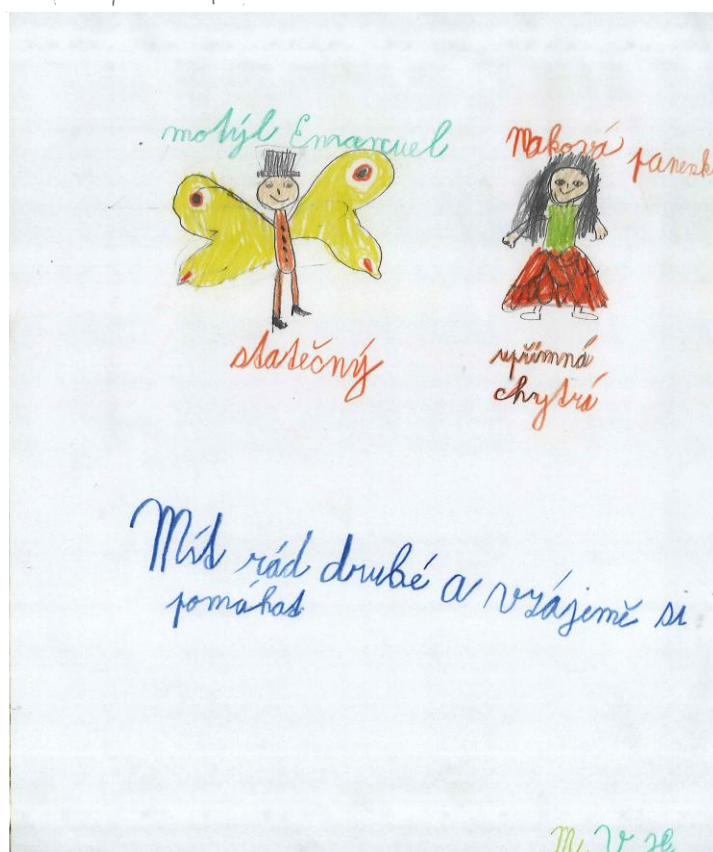 motýl Emanuel
Maková panenk
statečný
upřímná
chytrá
Mít rád druhé a vzájemě si
pomáhat
M. V. H